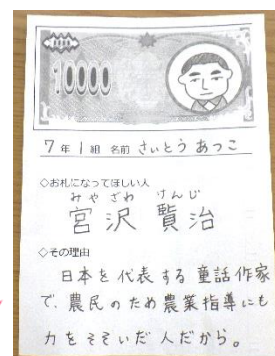 10000
7年1組 名前 さいとう あつこ
◇お札になってほしい人
みやざわ けんじ
宮沢 賢治
◇その理由
日本を代表する童話作家
で、農民のため農業指導にも
力をそそいだ人だから。